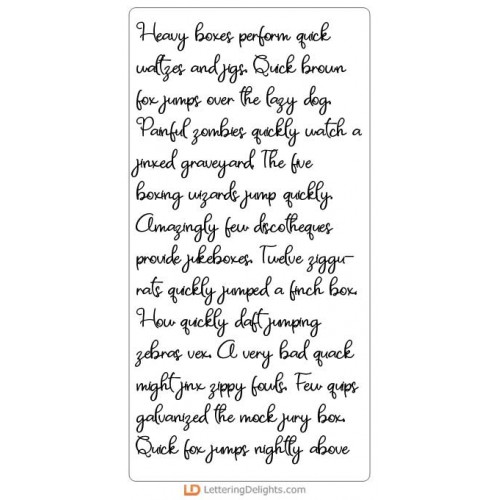 Heavy boxes perform quick
waltzes and jigs. Quick brown
fox jumps over the lazy dog.
Painful zombies quickly watch a
jinxed graveyard. The five
boxing wizards jump quickly.
Amazingly few discotheques
provide jukeboxes. Twelve ziggu-
rats quickly jumped a finch box.
How quickly daft jumping
zebras vex. A very bad quack
might jinx zippy fowls. Few quips
galvanized the mock jury box.
Quick fox jumps nightly above
LD LetteringDelights.com